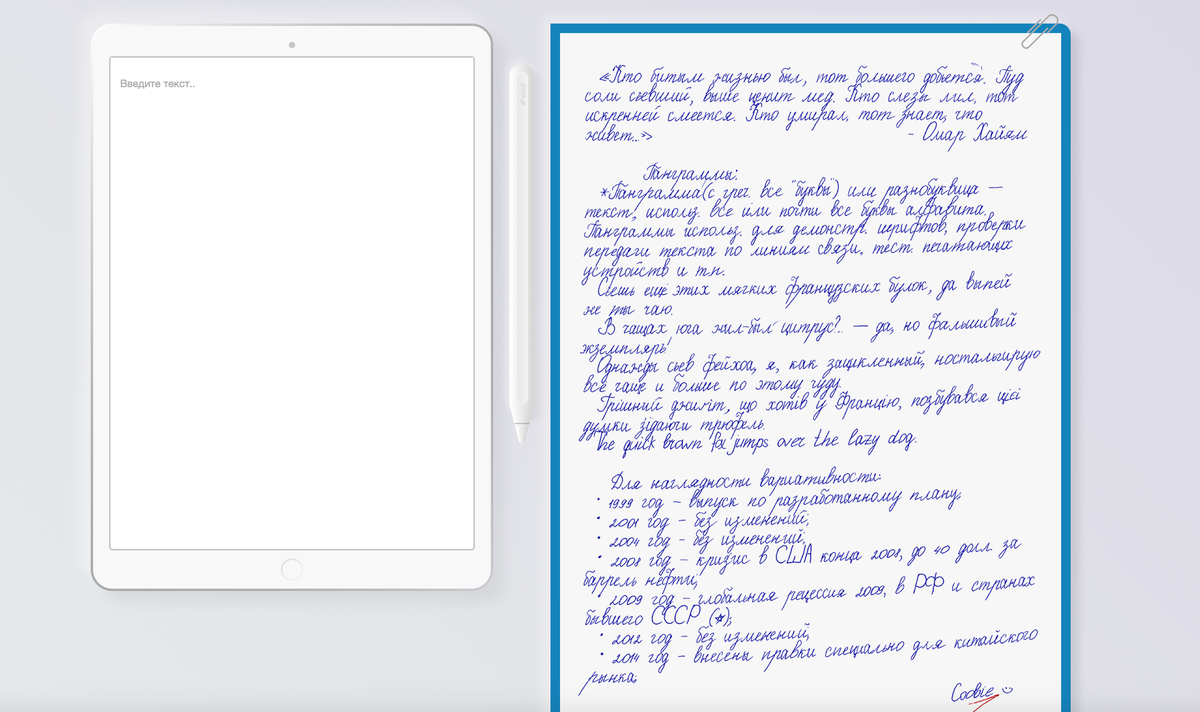 Введите текст..
«Кто битым жизнью был, тот большего добьется. Пуд
соли съевший, выше ценит мед. Кто слезы лил, тот
искренней смеется. Кто умирал, тот знает, что
живет...»
- Омар Хайям
Панграммы:
*Панграмма(с греч. все "буквы") или разнобуквица —
текст, использ. все или почти все буквы алфавита.
Панграммы использ. для демонстр. шрифтов, проверки
передачи текста по линиям связи, тест. печатающих
устройств и т.п.
Съешь ещё этих мягких французских булок, да выпей
же ты чаю.
В чащах юга жил-был цитрус?.. — да, но фальшивый
экземпляръ!
Однажды съев фейхоа, я, как зацикленный, ностальгирую
всё чаще и больше по этому чуду.
Грішний джиґіт, що хотів у Францію, позбувався цієї
думки з'їдаючи трюфель.
The quick brown fox jumps over the lazy dog.
Для наглядности вариативности:
• 1999 год – выпуск по разработанному плану;
• 2001 год – без изменений;
• 2004 год – без изменений;
• 2008 год – кризис в США конца 2008, до 40 долл. за
баррель нефти;
• 2009 год – глобальная рецессия 2009, в РФ и странах
бывшего СССР (☆);
• 2012 год – без изменений;
• 2014 год – внесены правки специально для китайского
рынка;
Cookie